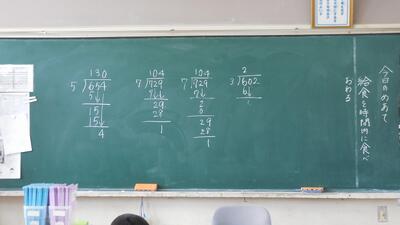 今日のめあて
給食を時間内に食べ
おわる
130
5)654
5
15
15
4
104
7)729
7
29
28
1
104
7)729
7
2
0
29
28
1
2
3)602
6